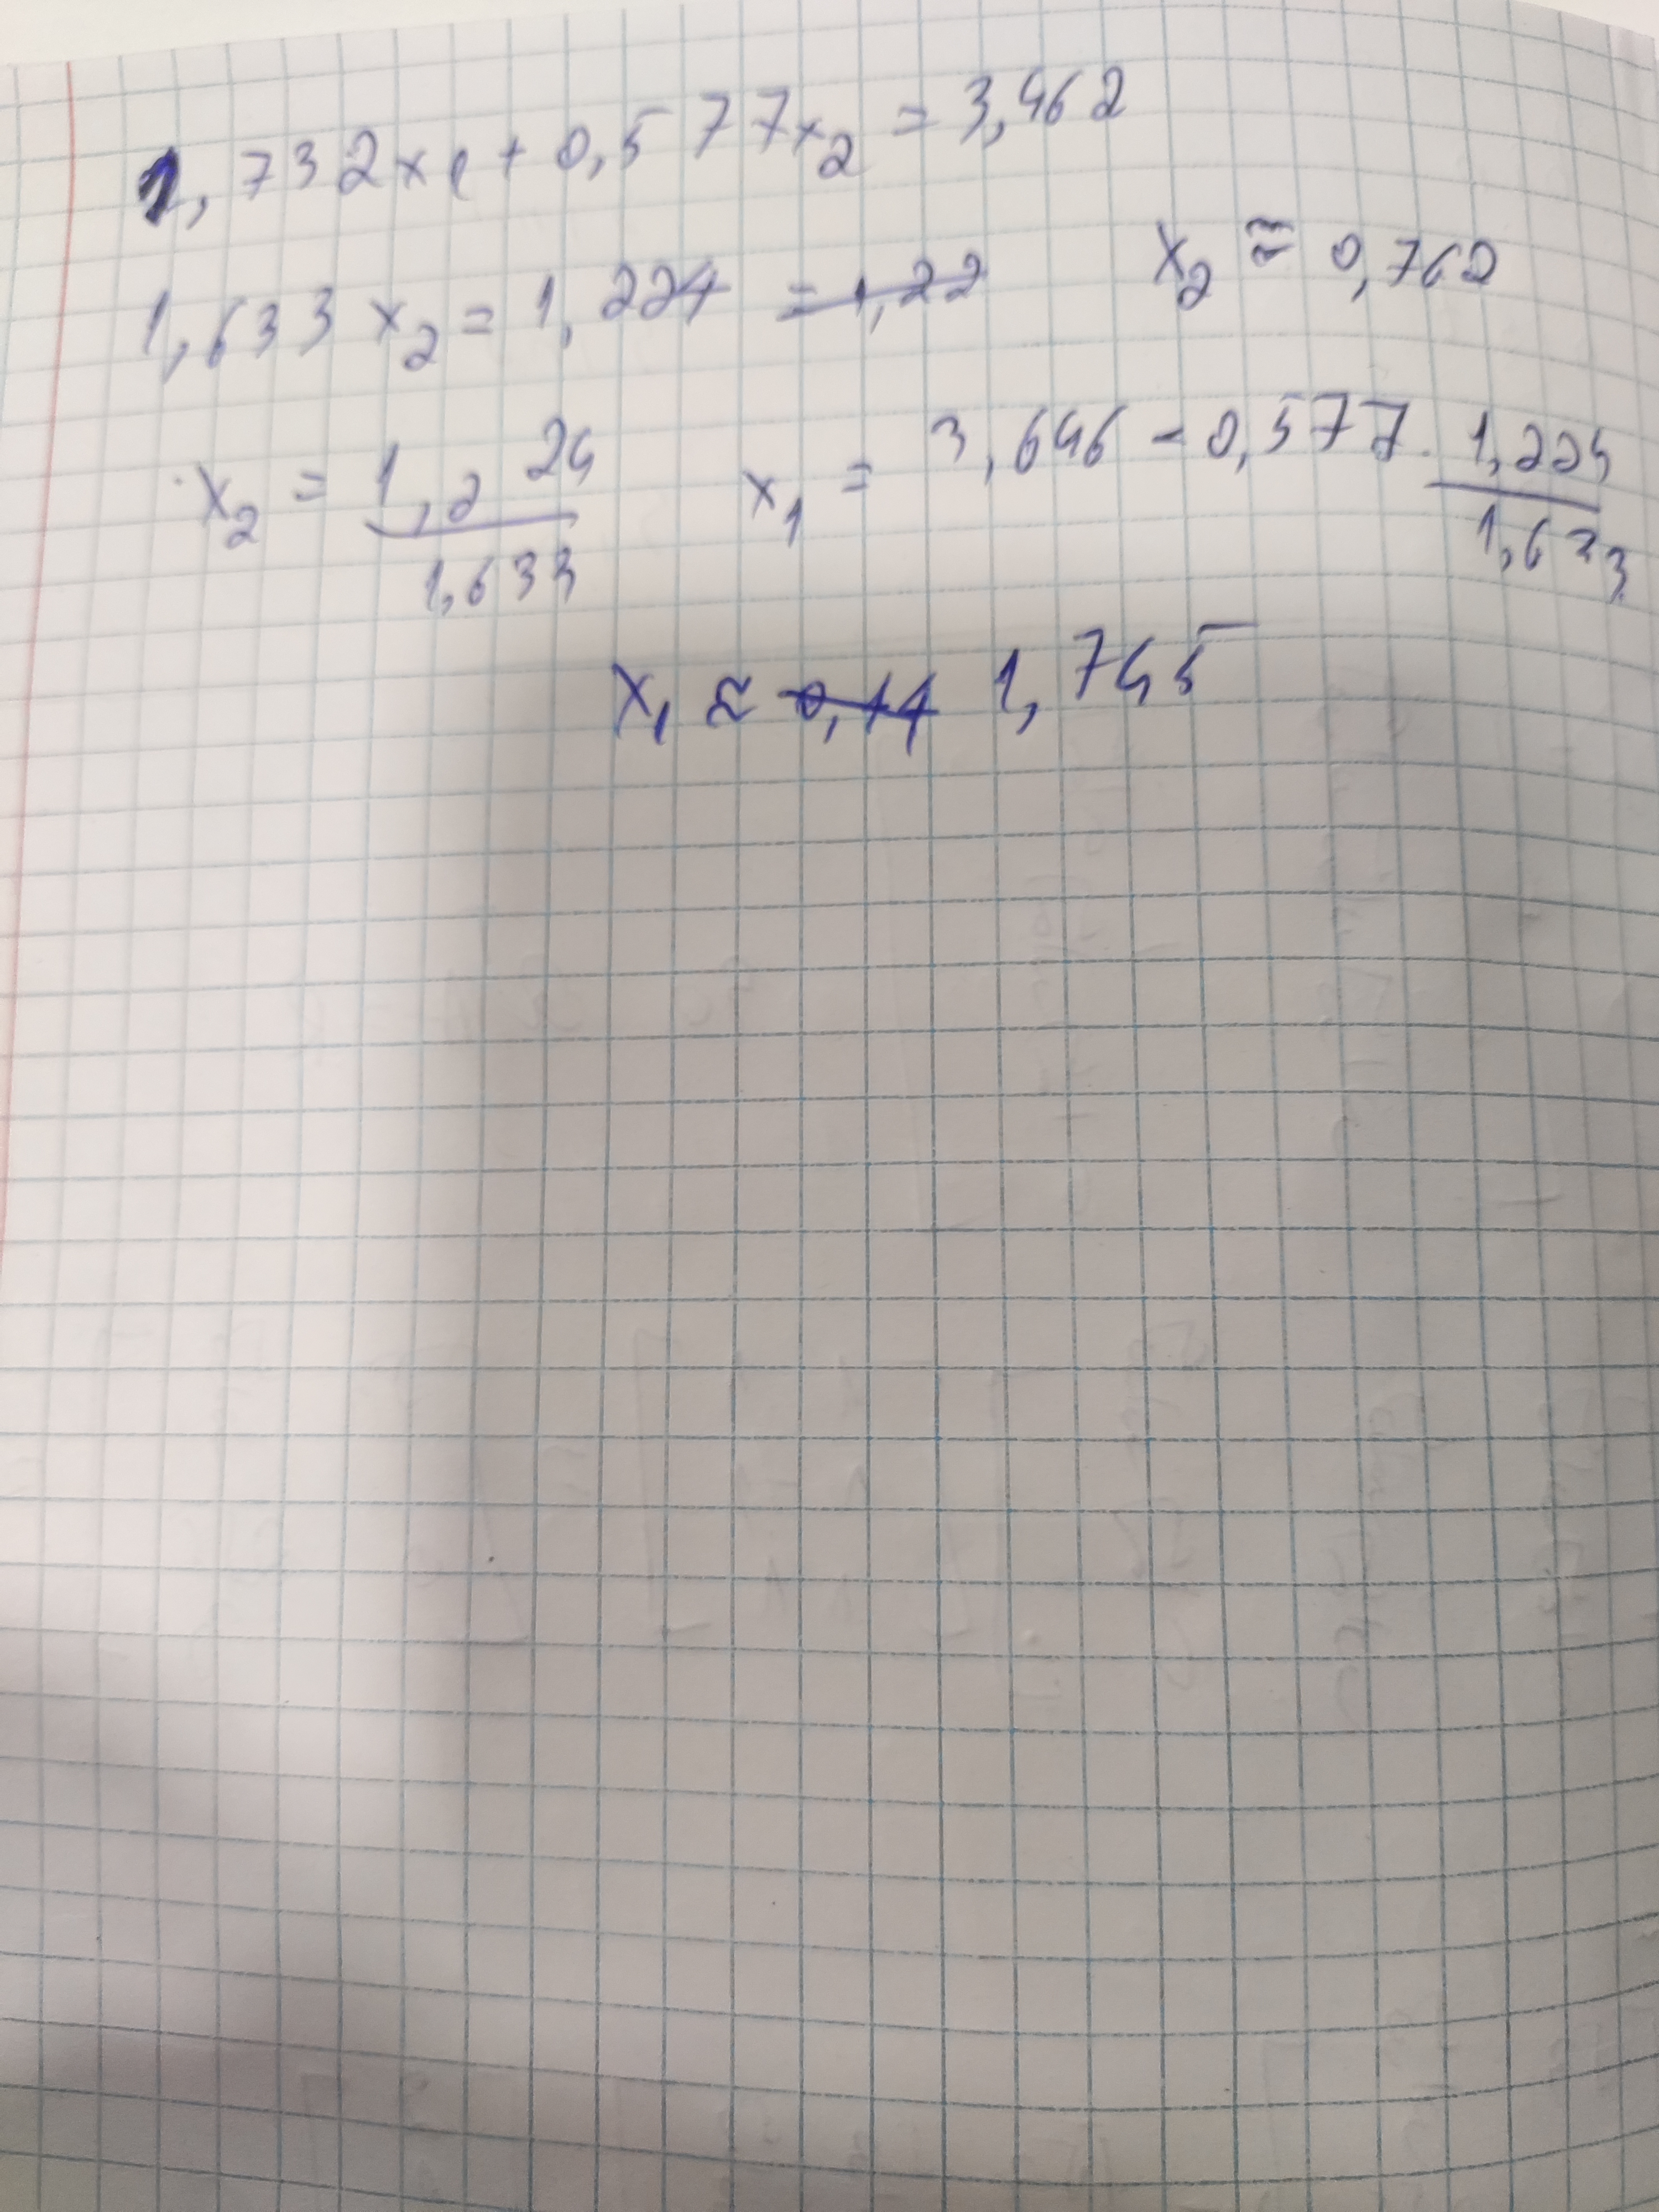 1,732x1 + 0,577x2 = 3,462
1,633x2 = 1,224 = 1,22 x2 ≈ 0,762
x2 = 1,224/1,633 x1 = 3,646 - 0,577 · 1,224/1,633
x1 ≈ 0,14 1,745